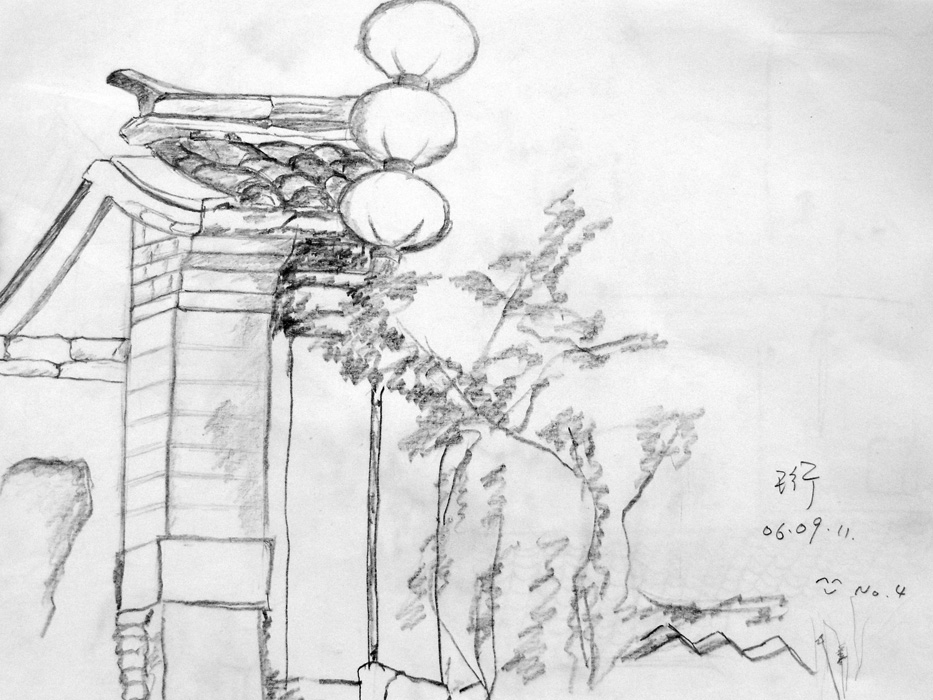 珩
06.09.11.
No. 4